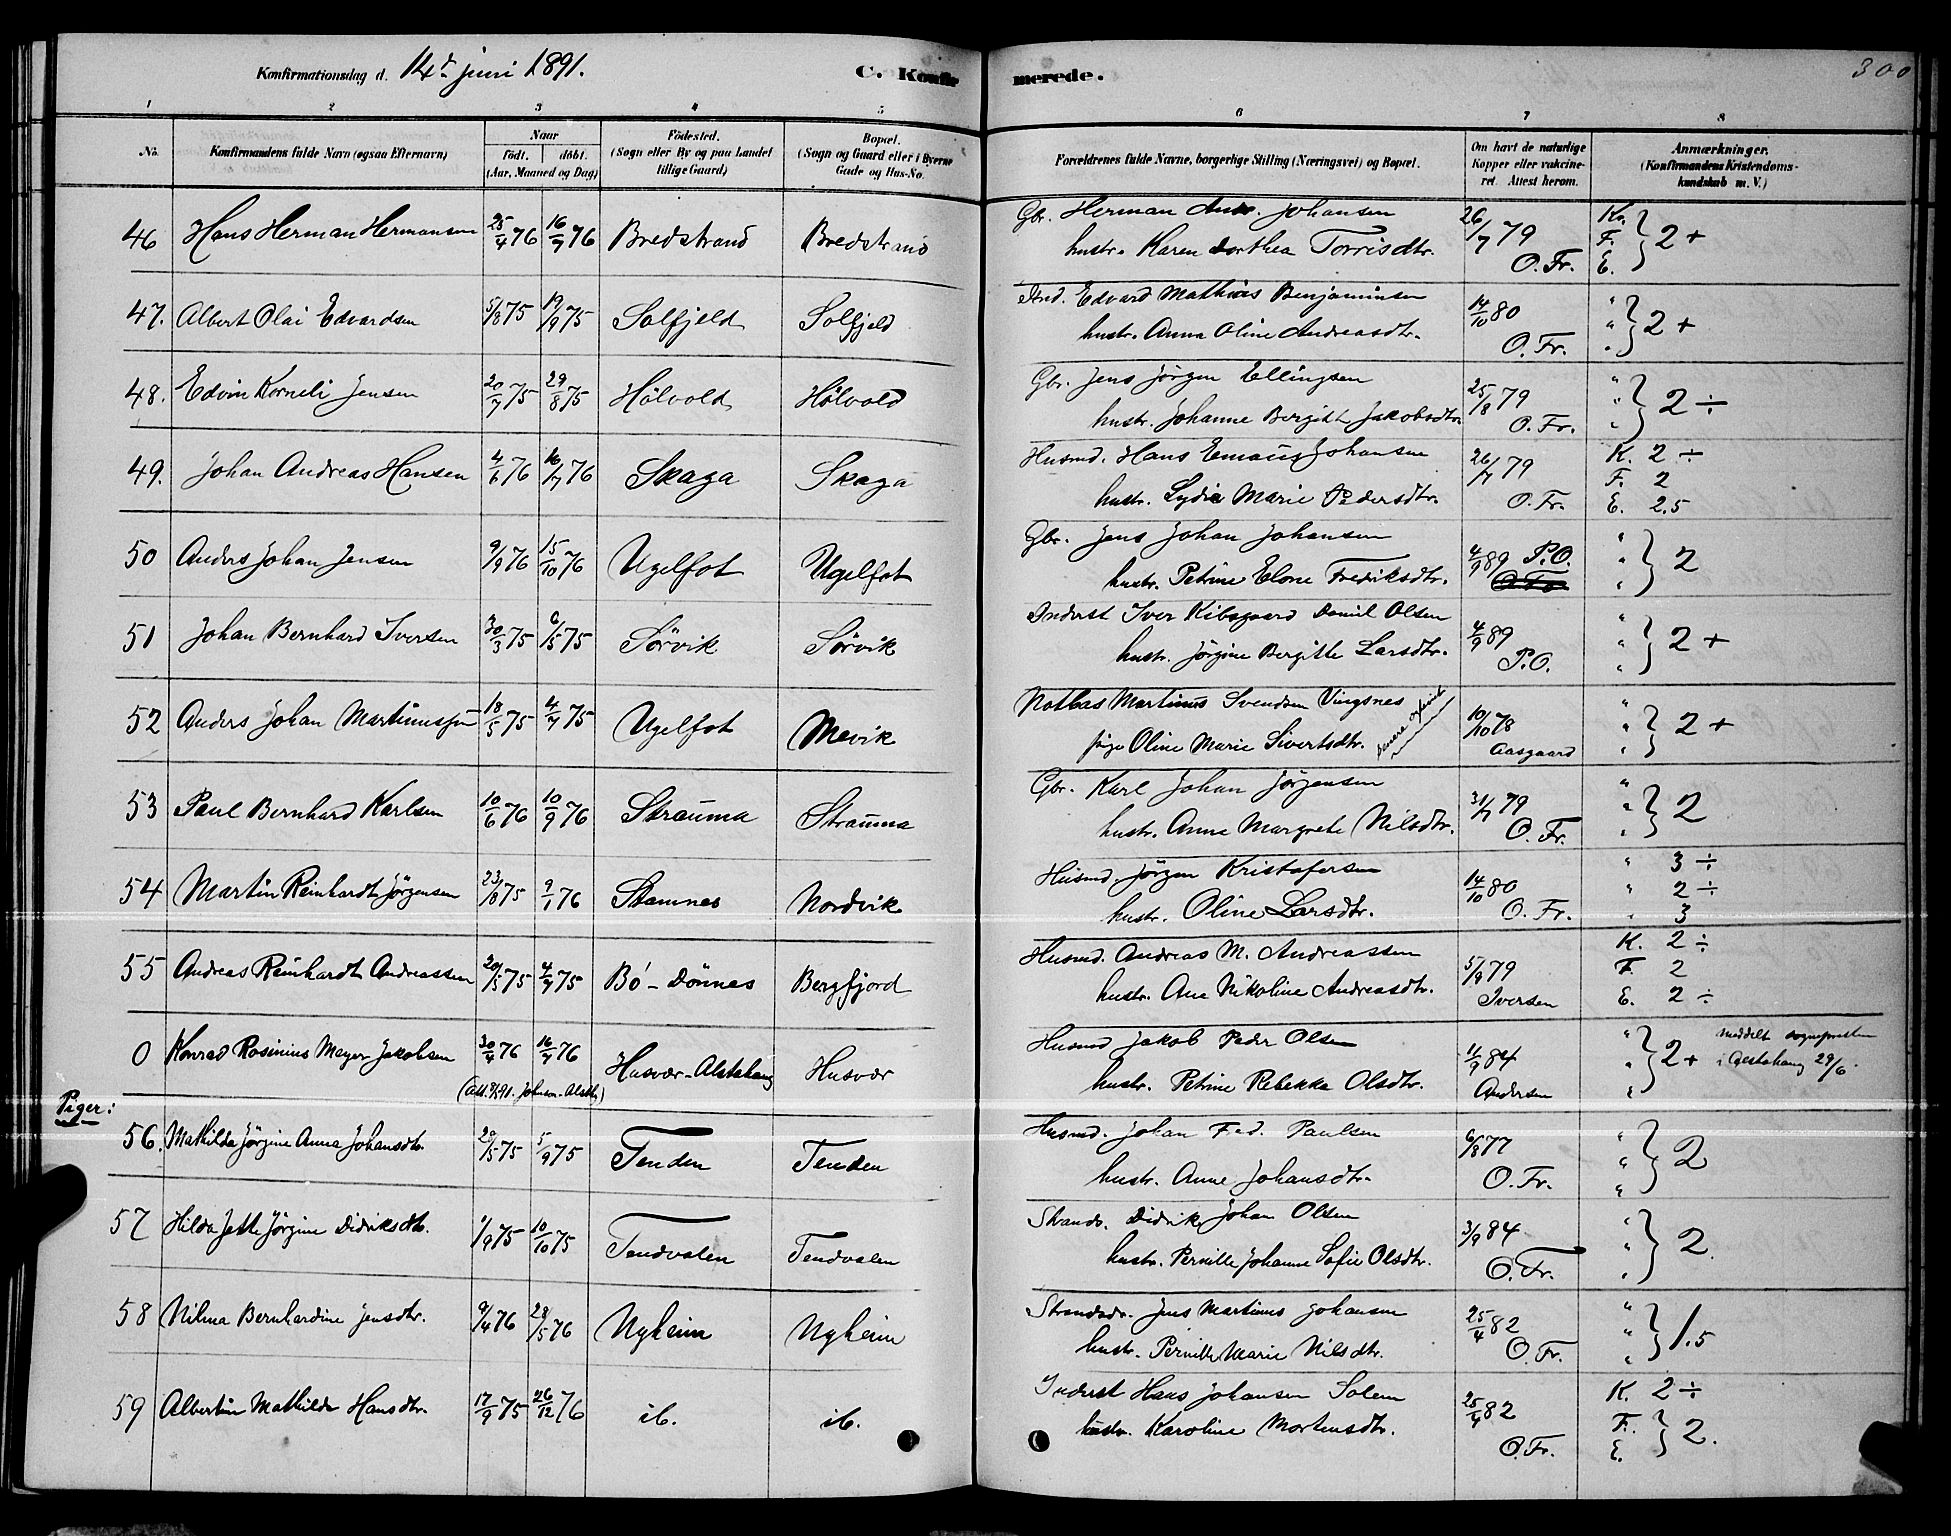 Konfirmationsdag d. 14de juni 1891.
C. Konfirmerede.
300
1 2 3 4 5 6 7 8
No.
Konfirmandens fulde Navn (ogsaa Efternavn)
Naar
födt. döbt.
(Aar, Maaned og Dag)
Födested.
(Sogn eller By og paa Landet
tillige Gaard)
Bopæl.
(Sogn og Gaard eller i Byerne
Gade og Hus-No.
Forældrenes fulde Navne, borgerlige Stilling (Næringsvei) og Bopæl.
Om havt de naturlige
Kopper eller vakcine-
ret. Attest herom.
Anmærkninger.
(Konfirmandens Kristendoms-
kundskab m. V.)
46 Hans Herman Hermansen 25/4 76 16/7 76 Bredstrand Bredstrand
Gbr. Herman Andr. Johansen 26/7 79 Kr.
hustr. Karen Dorthea Torrisdtr. F. } 2 +
O. Fr. E.
47. Albert Olai Edvardsen 5/8 75 19/9 75 Solfjeld Solfjeld
Ind. Edvard Mathias Benjaminsen 14/10 80 "
hustr. Anna Oline Andreasdtr. " } 2 +
O. Fr. "
48. Edvin Korneli Jensen 20/7 75 29/8 75 Hölvold Hölvold
Gbr. Jens Jörgen Ellingsen 25/8 79 "
hustr. Johanne Bergitte Jakobsdtr. " } 2 ÷
O. Fr. "
49. Johan Andreas Hansen 4/6 76 16/7 76 Skaga Skaga
Husmd. Hans Emaus Johansen 26/7 79 K. 2 ÷
hustr. Lydia Marie Pedersdtr. F. 2
O. Fr. E. 2.5
50 Anders Johan Jensen 9/9 76 15/10 76 Ugelfot Ugelfot
Gbr. Jens Johan Johansen "
hustr. Petrine Elone Fredriksdtr. 4/9 89 P.O. " } 2
O. Fr. "
51 Johan Bernhard Iversen 30/3 75 6/5 75 Sörvik Sörvik
Inderst Iver Kibsgaard Daniel Olsen 4/9 89 "
hustr. Jörgine Bergitte Larsdtr. " } 2 +
P.O. "
52 Anders Johan Martinussen 18/5 75 4/7 75 Ugelfot Mevik
Natbas Martinus Svendsen Vingsnes 10/10 78 "
pige Oline Marie Sivertsdtr. " } 2 +
Aasgaard "
53 Paul Bernhard Karlsen 10/6 76 10/9 76 Strauma Strauma
Gbr. Karl Johan Jörgensen 31/7 79 "
hustr. Anne Margrete Nilsdtr. " } 2
O. Fr. "
54 Martin Reinhardt Jörgensen 23/8 75 9/1 76 Stamnes Nordvik
Husmd. Jörgen Kristofersen 14/10 80 " 3 ÷
hustr. Oline Larsdtr. " 2 ÷
O. Fr. " 3
55 Andreas Reinhardt Andreassen 20/5 75 4/7 75 Bö - Dönnes Bergfjord
Husmd. Andreas M. Andreassen 5/9 79 K. 2 ÷
hustr. Ane Nikoline Andreasdtr. F. 2
Iversen E. 2 ÷
0 Konrad Rosinius Meyer Jakobsen 30/4 76 16/7 76 Husvær-Alstahaug Husvær
Husmd Jakob Peder Olsen 11/9 84 " meddelt sognepresten
hustr. Petrine Rebekka Olsdtr. " } 2 + i Alstahaug 29/6.
Andersen "
Piger:
56. Mathilda Jörgine Anna Johansdtr. 20/5 75 5/9 75 Tenden Tenden
Husmd. Johan Fred. Paulsen 6/8 77 "
hustr. Anne Johansdtr. " } 2
O. Fr. "
57 Hilda Jette Jörgine Didriksdtr. 1/9 75 10/10 75 Tendvalen Tendvalen
Strands. Didrik Johan Olsen 3/9 84 "
hustr. Pernille Johanne Sofie Olsdtr. " } 2.
O. Fr. "
58 Nilma Bernhardine Jensdtr. 9/4 76 28/5 76 Nyheim Nyheim
Strandsdr. Jens Martinus Johansen 25/4 82 "
hustr. Pernille Marie Nilsdtr. " } 1.5
O. Fr. "
59 Albertine Mathilde Hansdtr. 17/9 75 26/12 76 ib. ib.
Inderst Hans Johansen Solem 25/4 82 K. 2 ÷
hustr. Karoline Mortensdtr. F. } 2.
O. Fr. E.